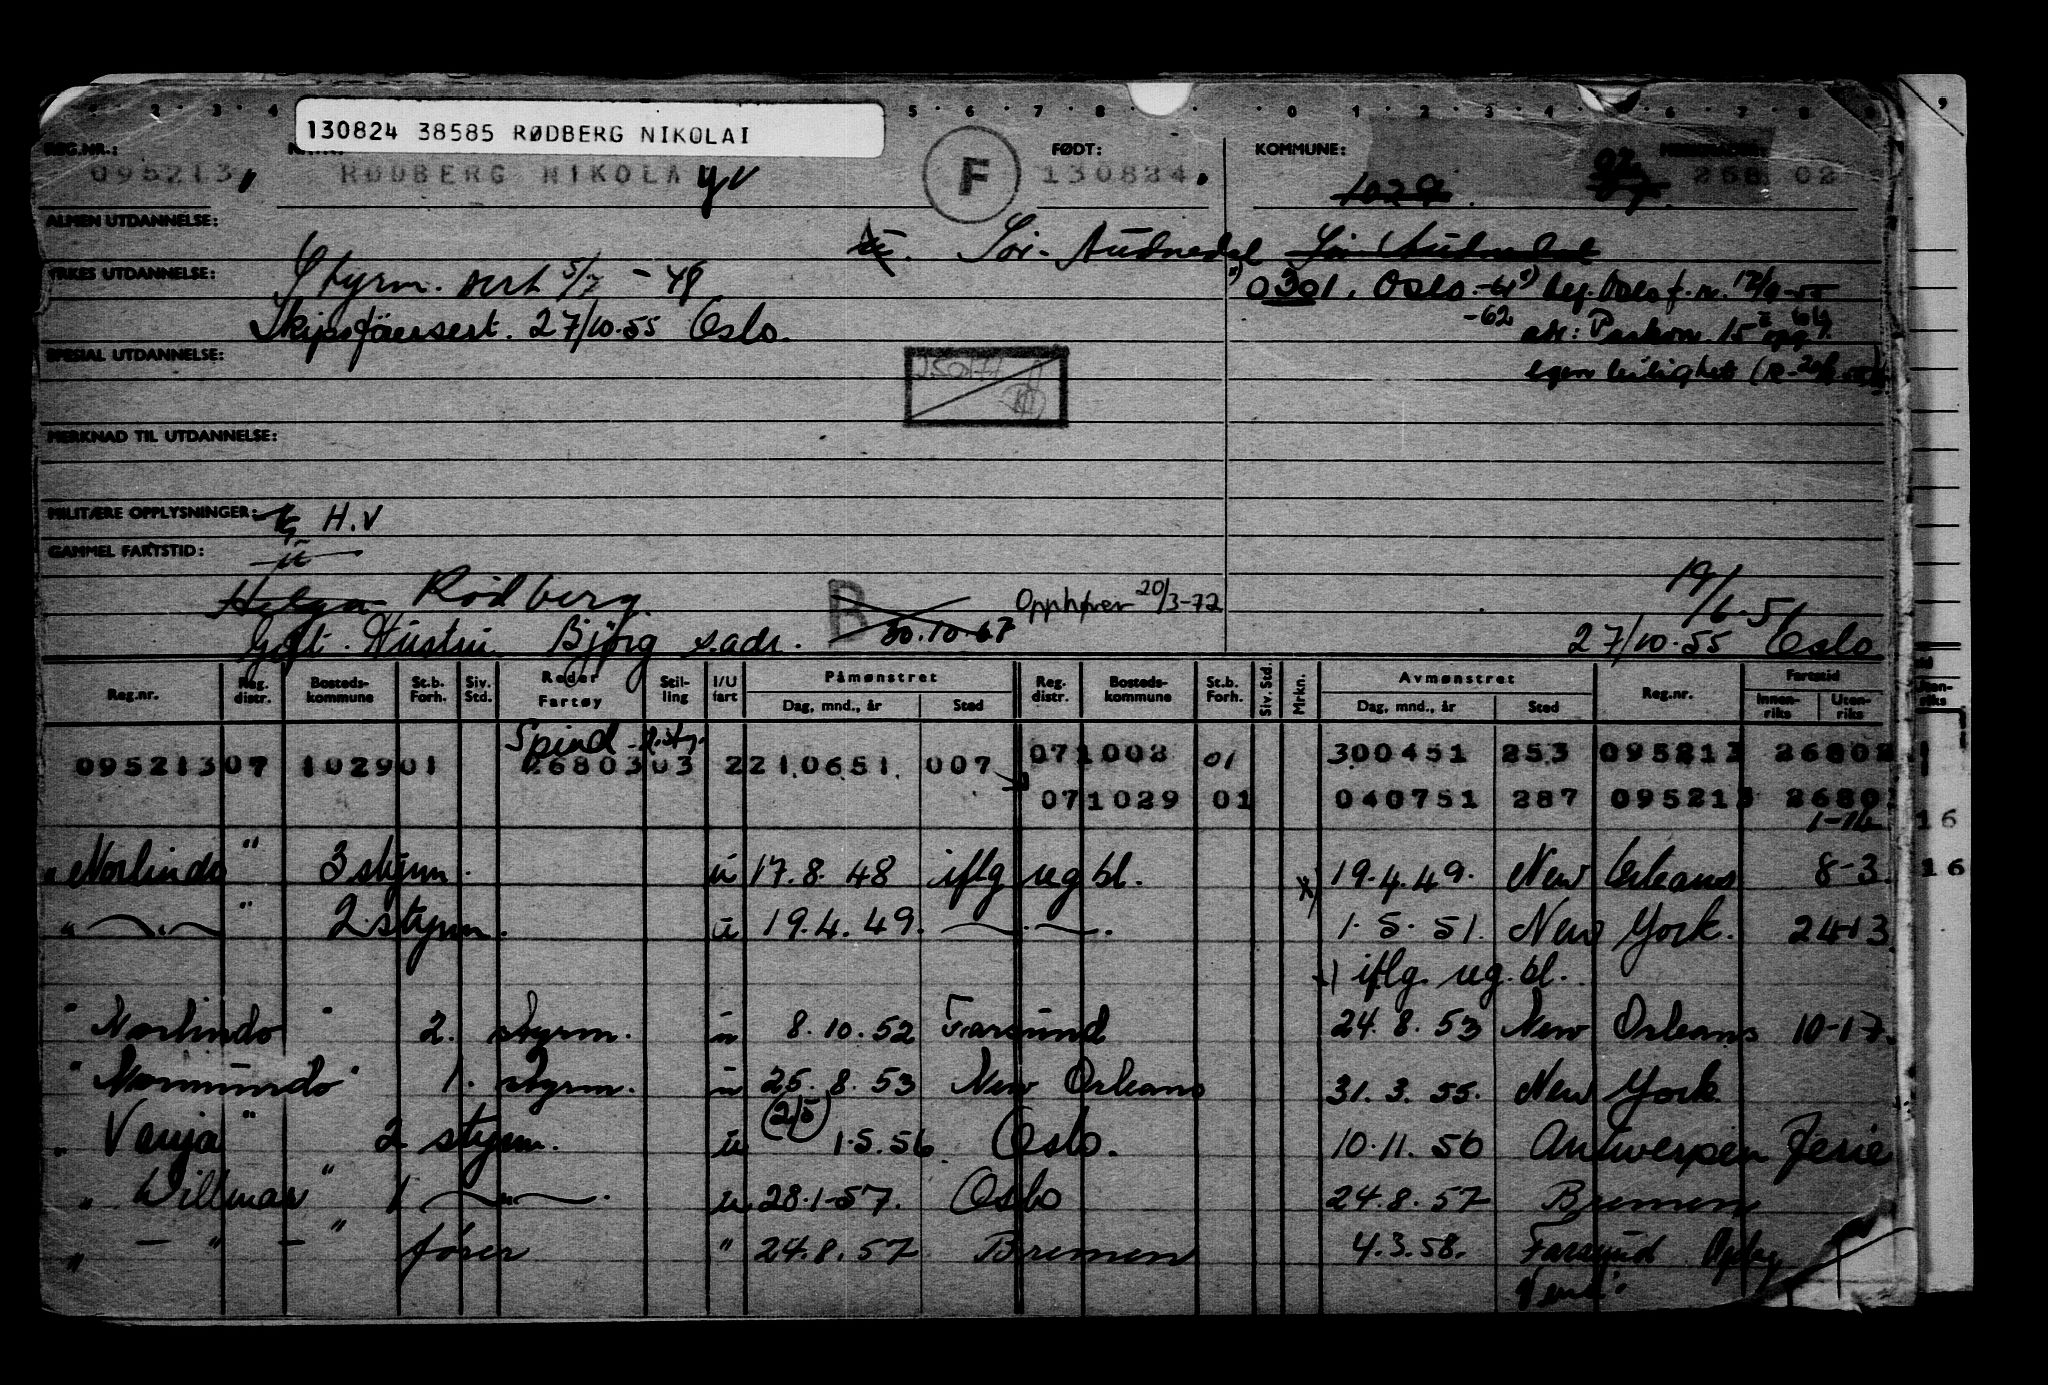 130824 38585 RØDBERG NIKOLAI
REG.NR.: FØDT: KOMMUNE:
095213 RØDBERG NIKOLA F 130824. 1029 268 02
ALMEN UTDANNELSE:
Sør-Audnedal
YRKES UTDANNELSE: Styrm. sert 5/7 - 48
0301. Oslo -61
Skipsførersert. 27/10.55 Oslo. -62
SPESIAL UTDANNELSE:
egen leilighet
MERKNAD TIL UTDANNELSE:
MILITÆRE OPPLYSNINGER: H.V
GAMMEL FARTSTID:
Helga Rødberg. B 30.10.67 Opphører 20/3-72 19/6.51
Gift. Hustru Bjørg s.adr. 27/10.55 Oslo
Reg.nr. Reg. distr. Bosteds-kommune St.b. Forh. Siv. Std. Reder Fartøy Stil-ling I/U fart Påmønstret Dag, mnd., år Sted Reg. distr. Bosteds-kommune St.b. Forh. Siv. Std. Mrkn. Avmønstret Dag, mnd., år Sted Reg.nr. Fartstid Innen-riks Uten-riks
Spind
095213 07 1029 01 26803 03 2 210651 007 07 1002 01 300451 253 095213 26802
07 1029 01 040751 287 095213 2680
1-14 16
"Norlindo" 3 styrm. u 17.8.48 iflg reg bl. x) 19.4.49. New Orleans 8-3 16
" — " — " 2 styrm. u 19.4.49. — " — . 1.5.51. New York. 24-13
x) iflg. reg. bl.
"Norlindo" 2. styrm. u 8.10.52 Farsund 24.8.53 New Orleans 10-17.
"Normundo" 1. styrm. u 25.8.53 New Orleans 31.3.55. New York
(2/5)
"Vanja" 2 styrm. u 1.5.56. Oslo. 10.11.56 Antwerpen Ferie
"Willmar" 1 — " — . u 28.1-57. Oslo 24.8.57 Bremen
" — " — " fører " 24.8.57 Bremen 4.3.58. Farsund Oplag